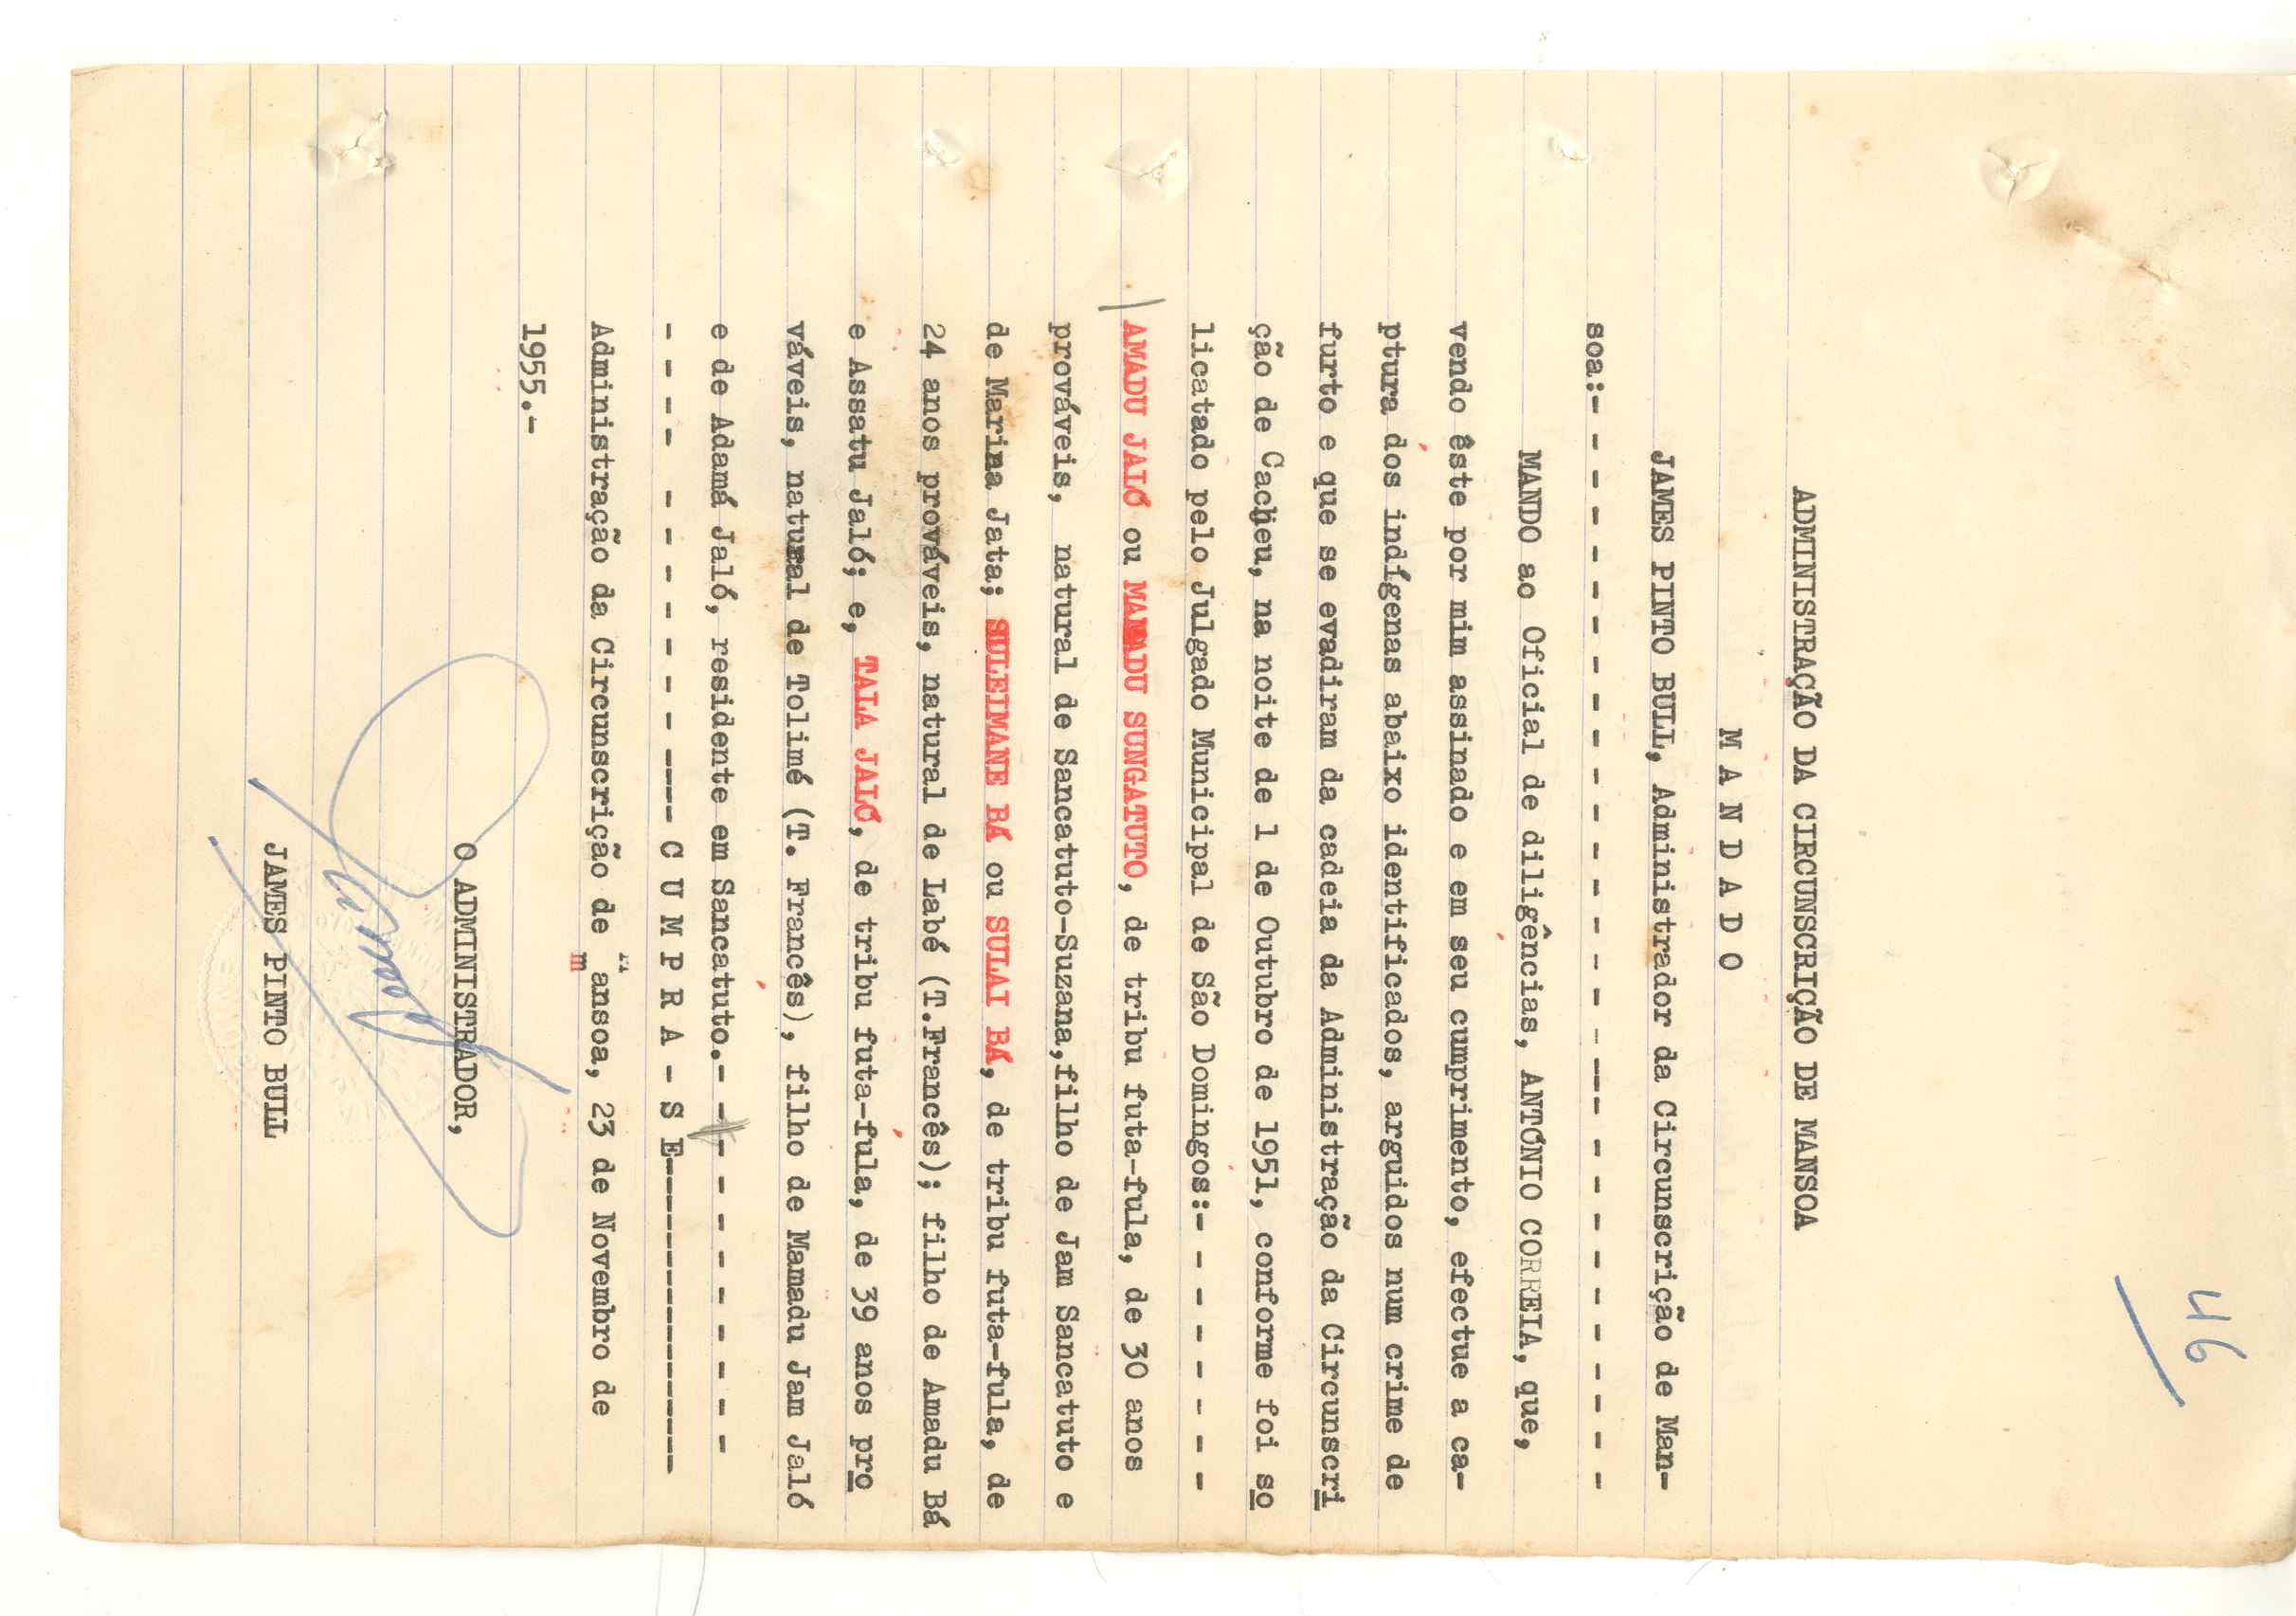 46
ADMINISTRAÇÃO DA CIRCUNSCRIÇÃO DE MANSOA
M A N D A D O
JAMES PINTO BULL, Administrador da Circunscrição de Man-
soa:- - - - - - - - - - - - - - - - - - - - - - - - - - - -
MANDO ao Oficial de diligências, ANTÓNIO CORREIA, que,
vendo êste por mim assinado e em seu cumprimento, efectue a ca-
ptura dos indígenas abaixo identificados, arguidos num crime de
furto e que se evadiram da cadeia da Administração da Circunscri
ção de Cacheu, na noite de 1 de Outubro de 1951, conforme foi so
licatado pelo Julgado Municipal de São Domingos:- - - - - - - -
AMADU JALÓ ou MAMADU SUNGATUTO, de tribu futa-fula, de 30 anos
prováveis, natural de Sancatuto-Suzana,filho de Jam Sancatuto e
de Marina Jata; SULEIMANE BÁ ou SULAI BÁ, de tribu futa-fula, de
24 anos prováveis, natural de Labé (T.Francês); filho de Amadu Bá
e Assatu Jaló; e, TALA JALÓ, de tribu futa-fula, de 39 anos pro
váveis, natural de Tolimé (T. Francês), filho de Mamadu Jam Jaló
e de Adamá Jaló, residente em Sancatuto.- - - - - - - - - - -
- - - - - - - - - - ---- C U M P R A - S E------------------
Administração da Circunscrição de mansoa, 23 de Novembro de
1955.-
O ADMINISTRADOR,
JAMES PINTO BULL